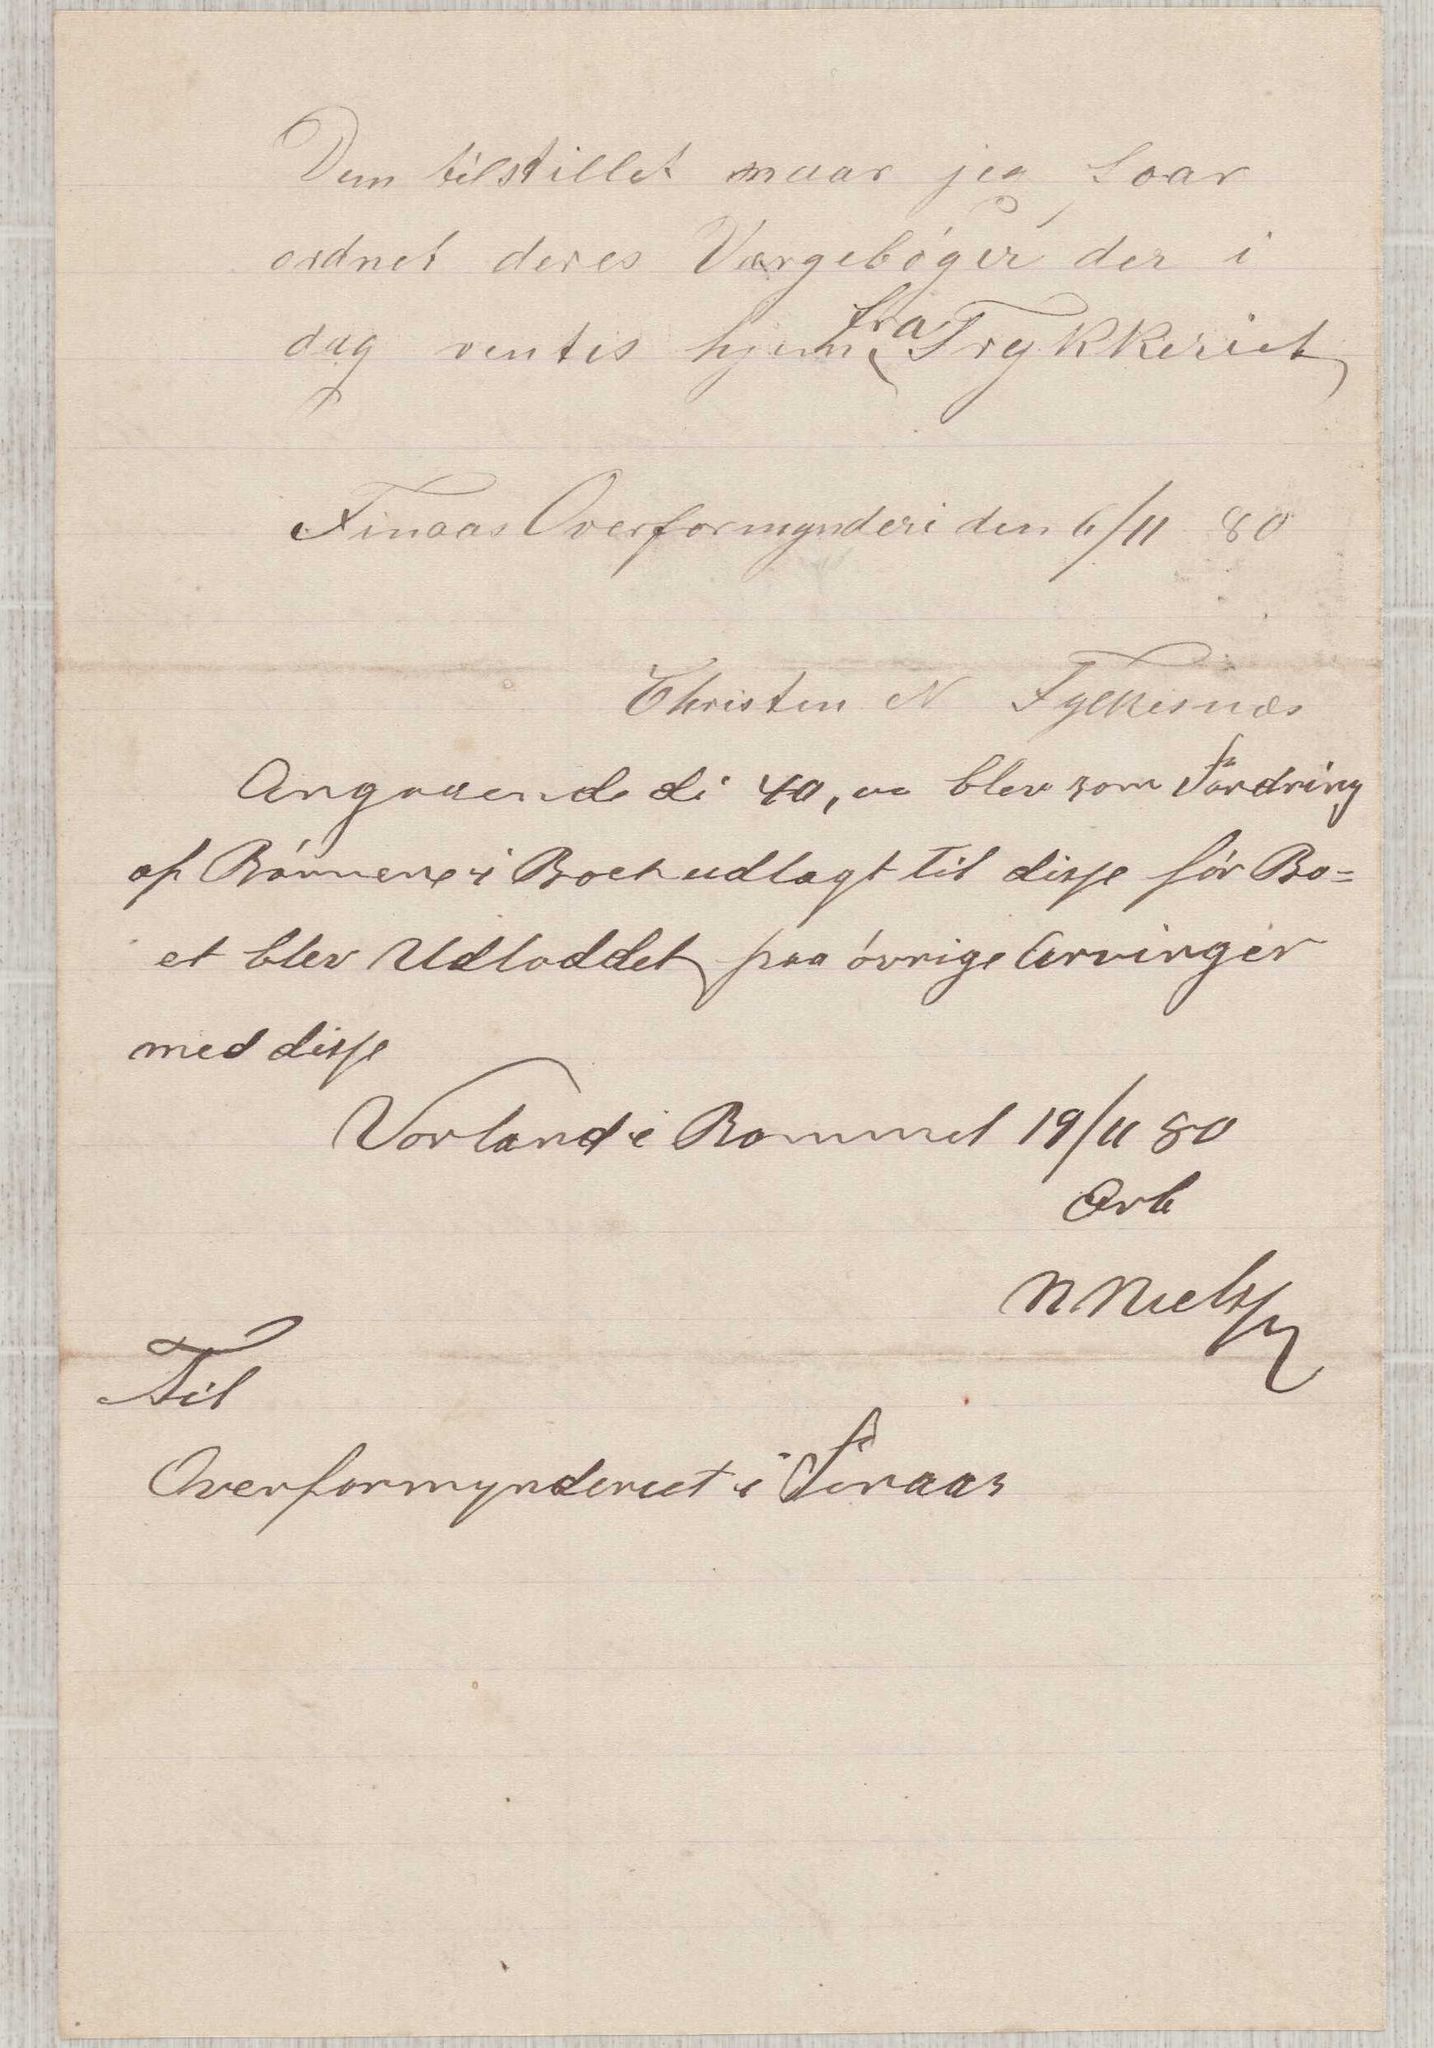 Dem tilstillet naar jeg faar
ordnet deres Værgebøger der i
dag ventes hjem fra Trykkeriet
Finaas Overformynderi den 6/11 80
Christen N Fylkesnæs
Angaaende di 40,00 blev som Fordring
af Børnene i Boet udlagt til disse før Bo=
et blev Udloddet paa øvrige Arvinger
med disse
Vorland i Bømmel 19/11 80
Ærb
N Nielsen
Til
Overformynderiet i Finaas